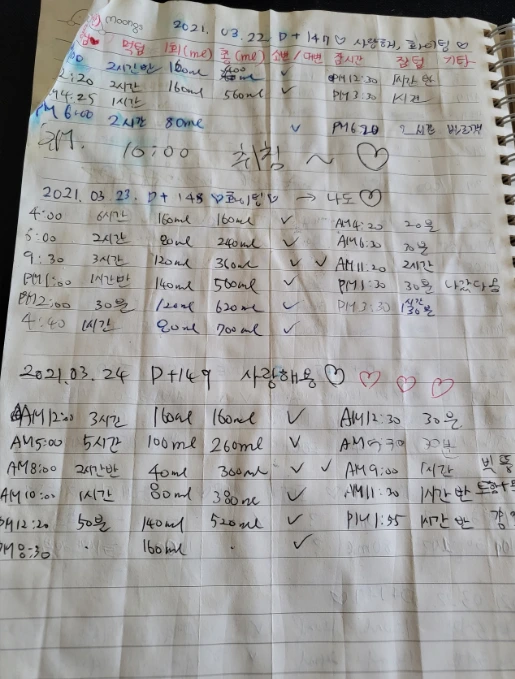 moongs
2021. 03. 22 D+147♡ 사랑해, 화이팅 ♡
먹텀 1회(ml) 총(ml) 소변/대변 잠시간 잠텀 기타
:00 2시간반 160ml 400ml ✓ PM12:30 1시간 반
2:20 2시간 160ml 560ml ✓ PM3:30 1시간
PM4:25 1시간
PM6:00 2시간 80ml ✓ PM6:20
PM. 10:00 취침 ~ ♡
2021. 03. 23. D+148 ♡ → 나도♡
4:00 6시간 160ml 160ml ✓ AM4:20 20분
2시간 80ml 240ml ✓
9:30 3시간 120ml 360ml ✓ ✓ AM11:20 2시간
PM1:00 1시간반 140ml 500ml ✓ PM1:30 30분 나갔다옴
PM2:00 30분 120ml 620ml ✓ PM3:30 1시간 30분
4:40 1시간 80ml 700ml ✓
2021.03.24 D+149 사랑해용 ♡ ♡ ♡ ♡
AM12:00 3시간 160ml 160ml ✓ AM12:30 30분
AM5:00 5시간 100ml 260ml ✓
AM8:00 2시간반 40ml 300ml ✓ ✓ AM9:00 1시간
AM10:00 1시간 80ml 380ml ✓ AM11:30 1시간 반
PM12:20 50분 140ml 520ml ✓ PM1:55 1시간 반
PM8:30 · 160ml · ✓